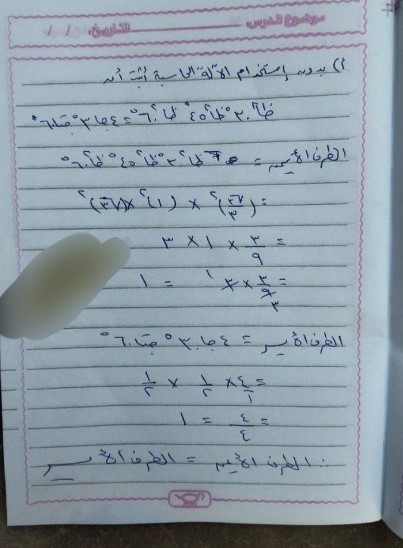 موضوع الدرس التاريخ: / /
أ) بدون إستخدام الآلة الحاسبة أثبت أن
ظا²٣٠° ظا²٤٥° ظا²٦٠° = ٤ جا٣٠° جتا٦٠°
الطرف الأيمن = ظا²٣٠° ظا²٤٥° ظا²٦٠°
= (√٣/٣)² × (١)² × (√٣)²
= ٣/٩ × ١ × ٣
= ٣/٩ × ٣ = ١
الطرف الأيسر = ٤ جا٣٠° جتا٦٠°
= ٤/١ × ١/٢ × ١/٢
= ٤/٤ = ١
∴ الطرف الأيمن = الطرف الأيسر